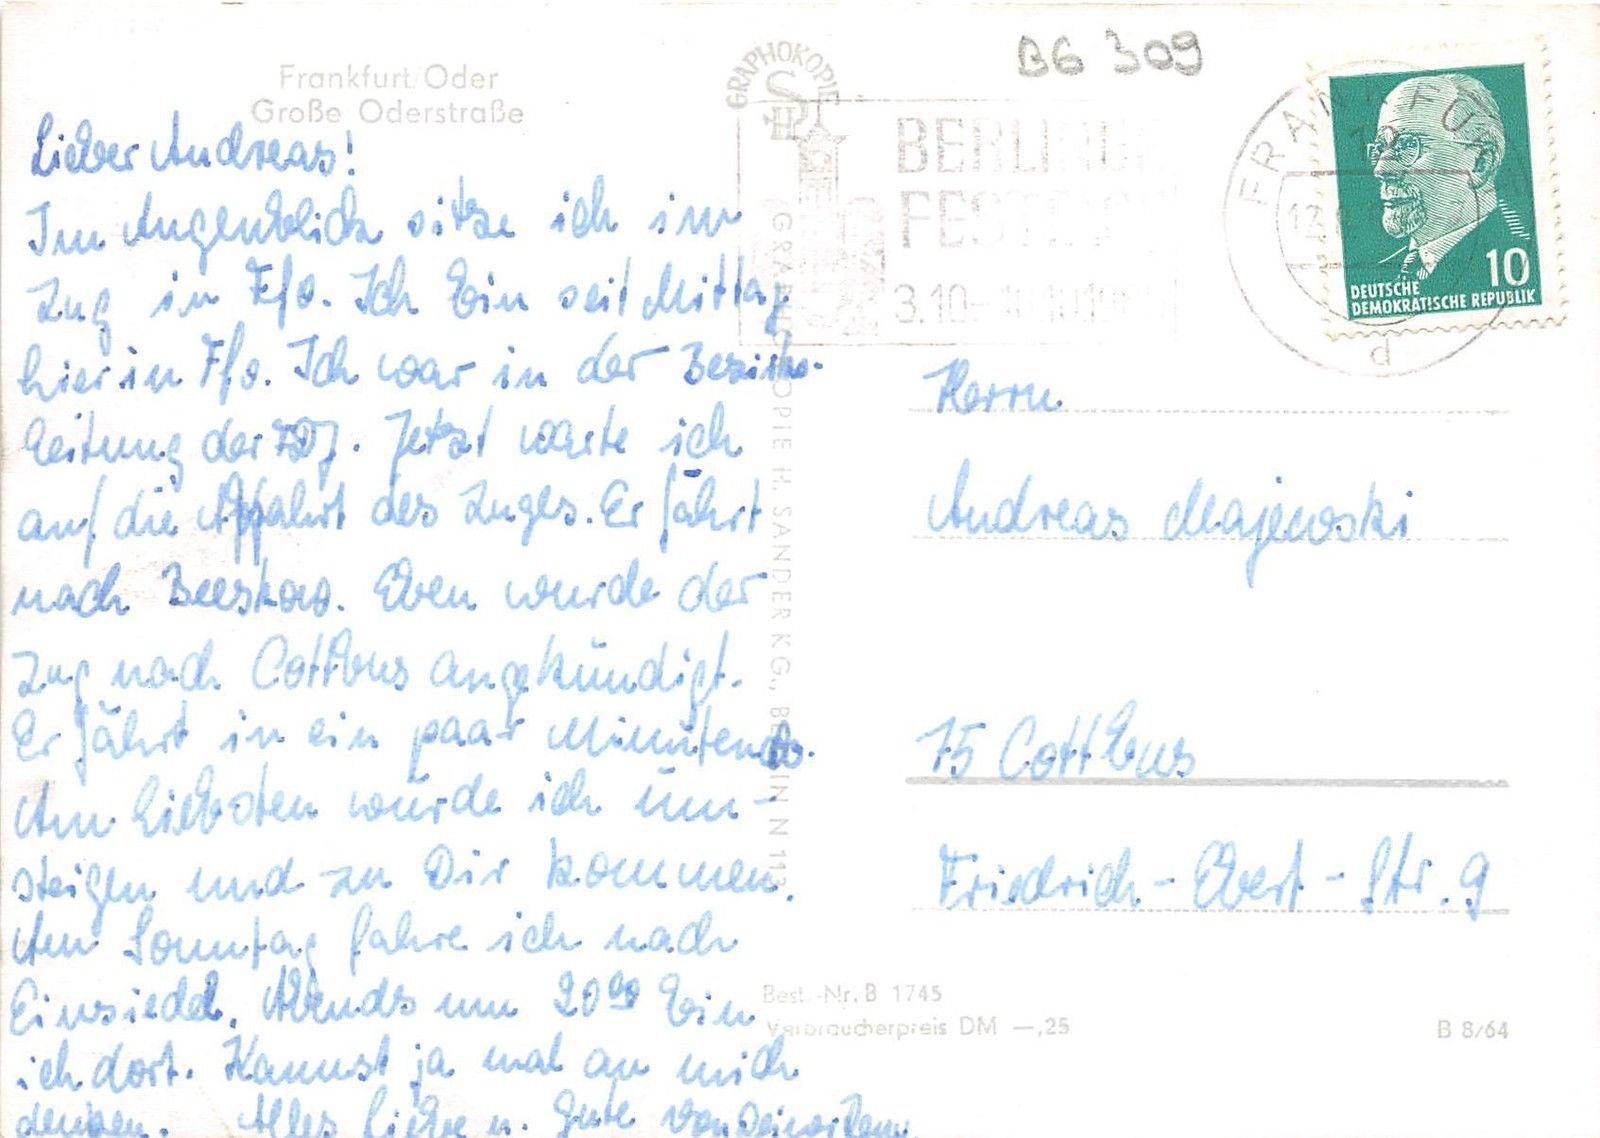 Frankfurt/Oder
Große Oderstraße
Lieber Andreas!
Im Augenblick sitze ich im
Zug in Ffo. Ich bin seit Mittag
hier in Ffo. Ich war in der Bezirks-
leitung der FDJ. Jetzt warte ich
auf die Abfahrt des Zuges. Er fährt
nach Beeskow. Eben wurde der
Zug nach Cottbus angekündigt.
Er fährt in ein paar Minuten ab.
Am liebsten würde ich um-
steigen und zu Dir kommen.
Am Sonntag fahre ich nach
Einsiedel. Abends um 20⁰⁰ bin
ich dort. Kannst ja mal an mich
denken. Alles Liebe u. Gute von Deiner
GRAPHOKOPIE
H
GRAPHOKOPIE H. SANDER KG., BERLIN N 113
B6 309
BERLINER
FESTTAGE
3.10.-
FRANKFUR
12
d
10
DEUTSCHE
DEMOKRATISCHE REPUBLIK
Herrn
Andreas Majewski
75 Cottbus
Friedrich-Ebert-Str. 9
Best.-Nr. B 1745
Verbraucherpreis DM —,25
B 8/64